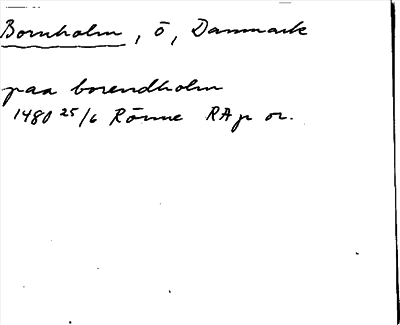 Bornholm, ö, Danmark
paa borendholm
1480 25/6 Rönne RAp or.